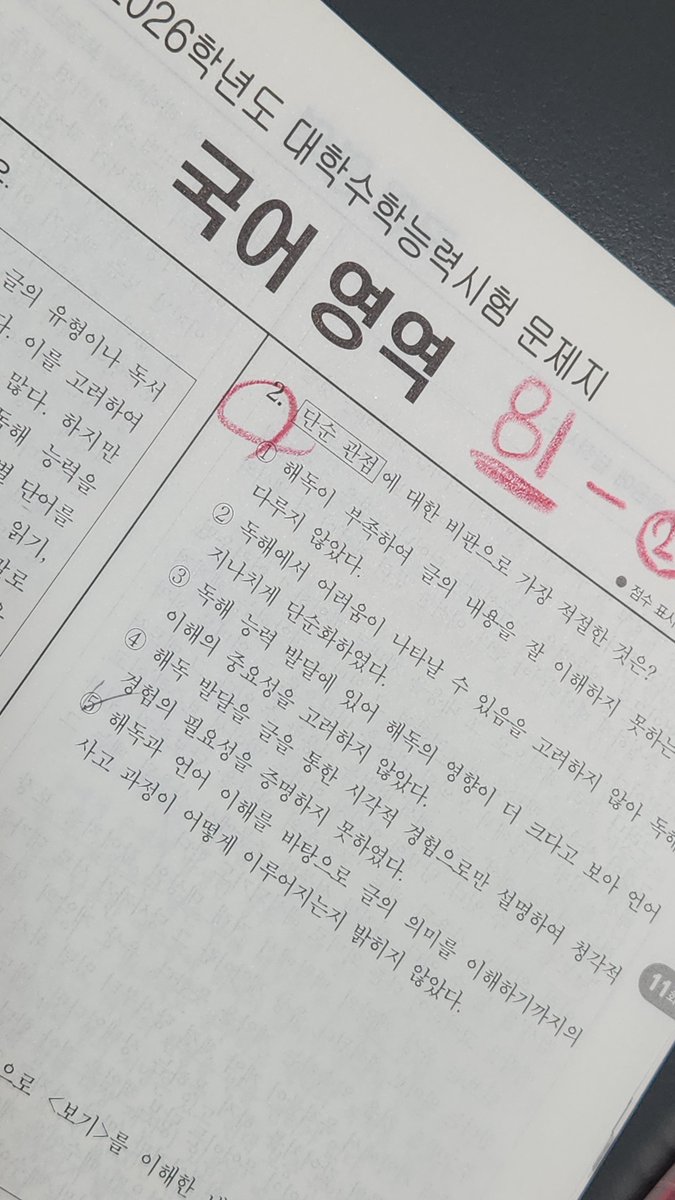 2026학년도 대학수학능력시험 문제지
국어 영역
81 - ②
● 점수 표시
글의 유형이나 독서
이를 고려하여
많다. 하지만
독해 능력을
단어를
읽기,
2. 단순 관점에 대한 비판으로 가장 적절한 것은?
① 해독이 부족하여 글의 내용을 잘 이해하지 못하는
다루지 않았다.
② 독해에서 어려움이 나타날 수 있음을 고려하지 않아 독해
지나치게 단순화하였다.
③ 독해 능력 발달에 있어 해독의 영향이 더 크다고 보아 언어
이해의 중요성을 고려하지 않았다.
④ 해독 발달을 글을 통한 시각적 경험으로만 설명하여 청각적
경험의 필요성을 증명하지 못하였다.
⑤ 해독과 언어 이해를 바탕으로 글의 의미를 이해하기까지의
사고 과정이 어떻게 이루어지는지 밝히지 않았다.
11회
으로 <보기>를 이해한